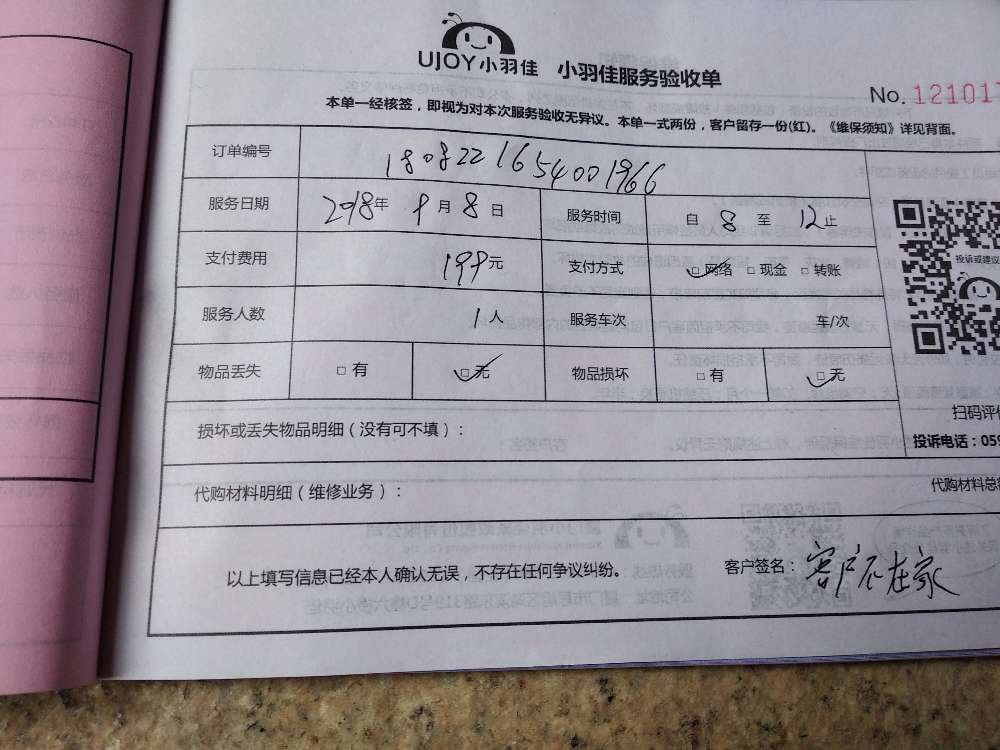 UJOY小羽佳 小羽佳服务验收单
No. 121017
本单一经核签，即视为对本次服务验收无异议。本单一式两份，客户留存一份(红)。《维保须知》详见背面。
订单编号 1808221654001966
服务日期 2018年 9月 8日 服务时间 自 8 至 12止
支付费用 199元 支付方式 □网络 □现金 □转账
投诉或建议
服务人数 1人 服务车次 车/次
物品丢失 □有 □无 物品损坏 □有 □无
扫码评
损坏或丢失物品明细（没有可不填）：
投诉电话：059
代购材料明细（维修业务）： 代购材料总
以上填写信息已经本人确认无误，不存在任何争议纠纷。 客户签名：客户不在家